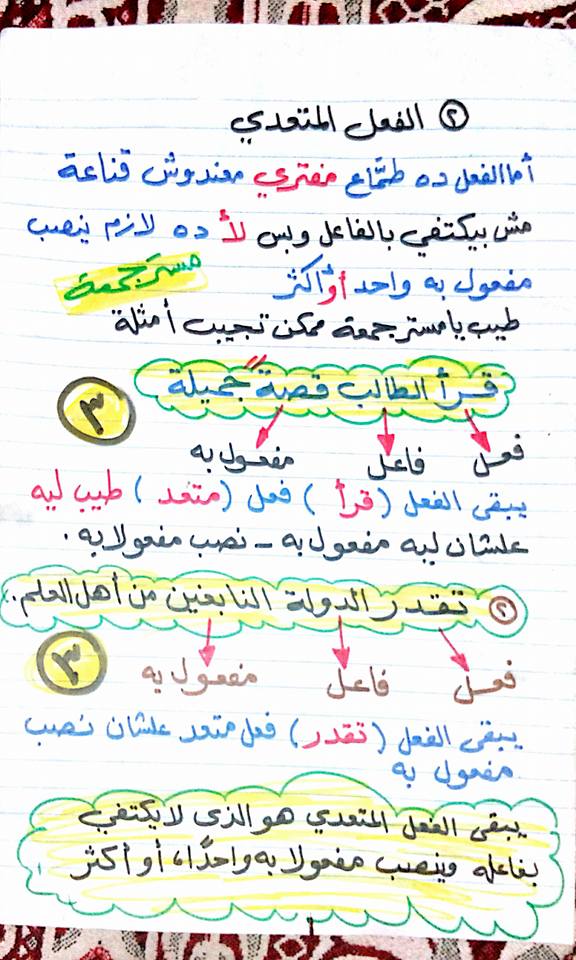 ② الفعل المتعدي
أما الفعل ده طمَّاع مفتري معندوش قناعة
مش بيكتفي بالفاعل وبس لأ ده لازم ينصب
مفعول به واحد أو أكثر مسترجمعة
طيب يا مسترجمعة ممكن تجيب أمثلة
قرأ الطالب قصةً جميلة
٣
فعل فاعل مفعول به
يبقى الفعل (قرأ) فعل (متعد) طيب ليه
علشان ليه مفعول به - نصب مفعولا به .
② تقدر الدولة النابغين من أهل العلم.
٣
فعل فاعل مفعول به
يبقى الفعل (تقدر) فعل متعد علشان نصب
مفعول به
يبقى الفعل المتعدي هو الذى لا يكتفي
بفاعله وينصب مفعولا به واحدًا، أو أكثر